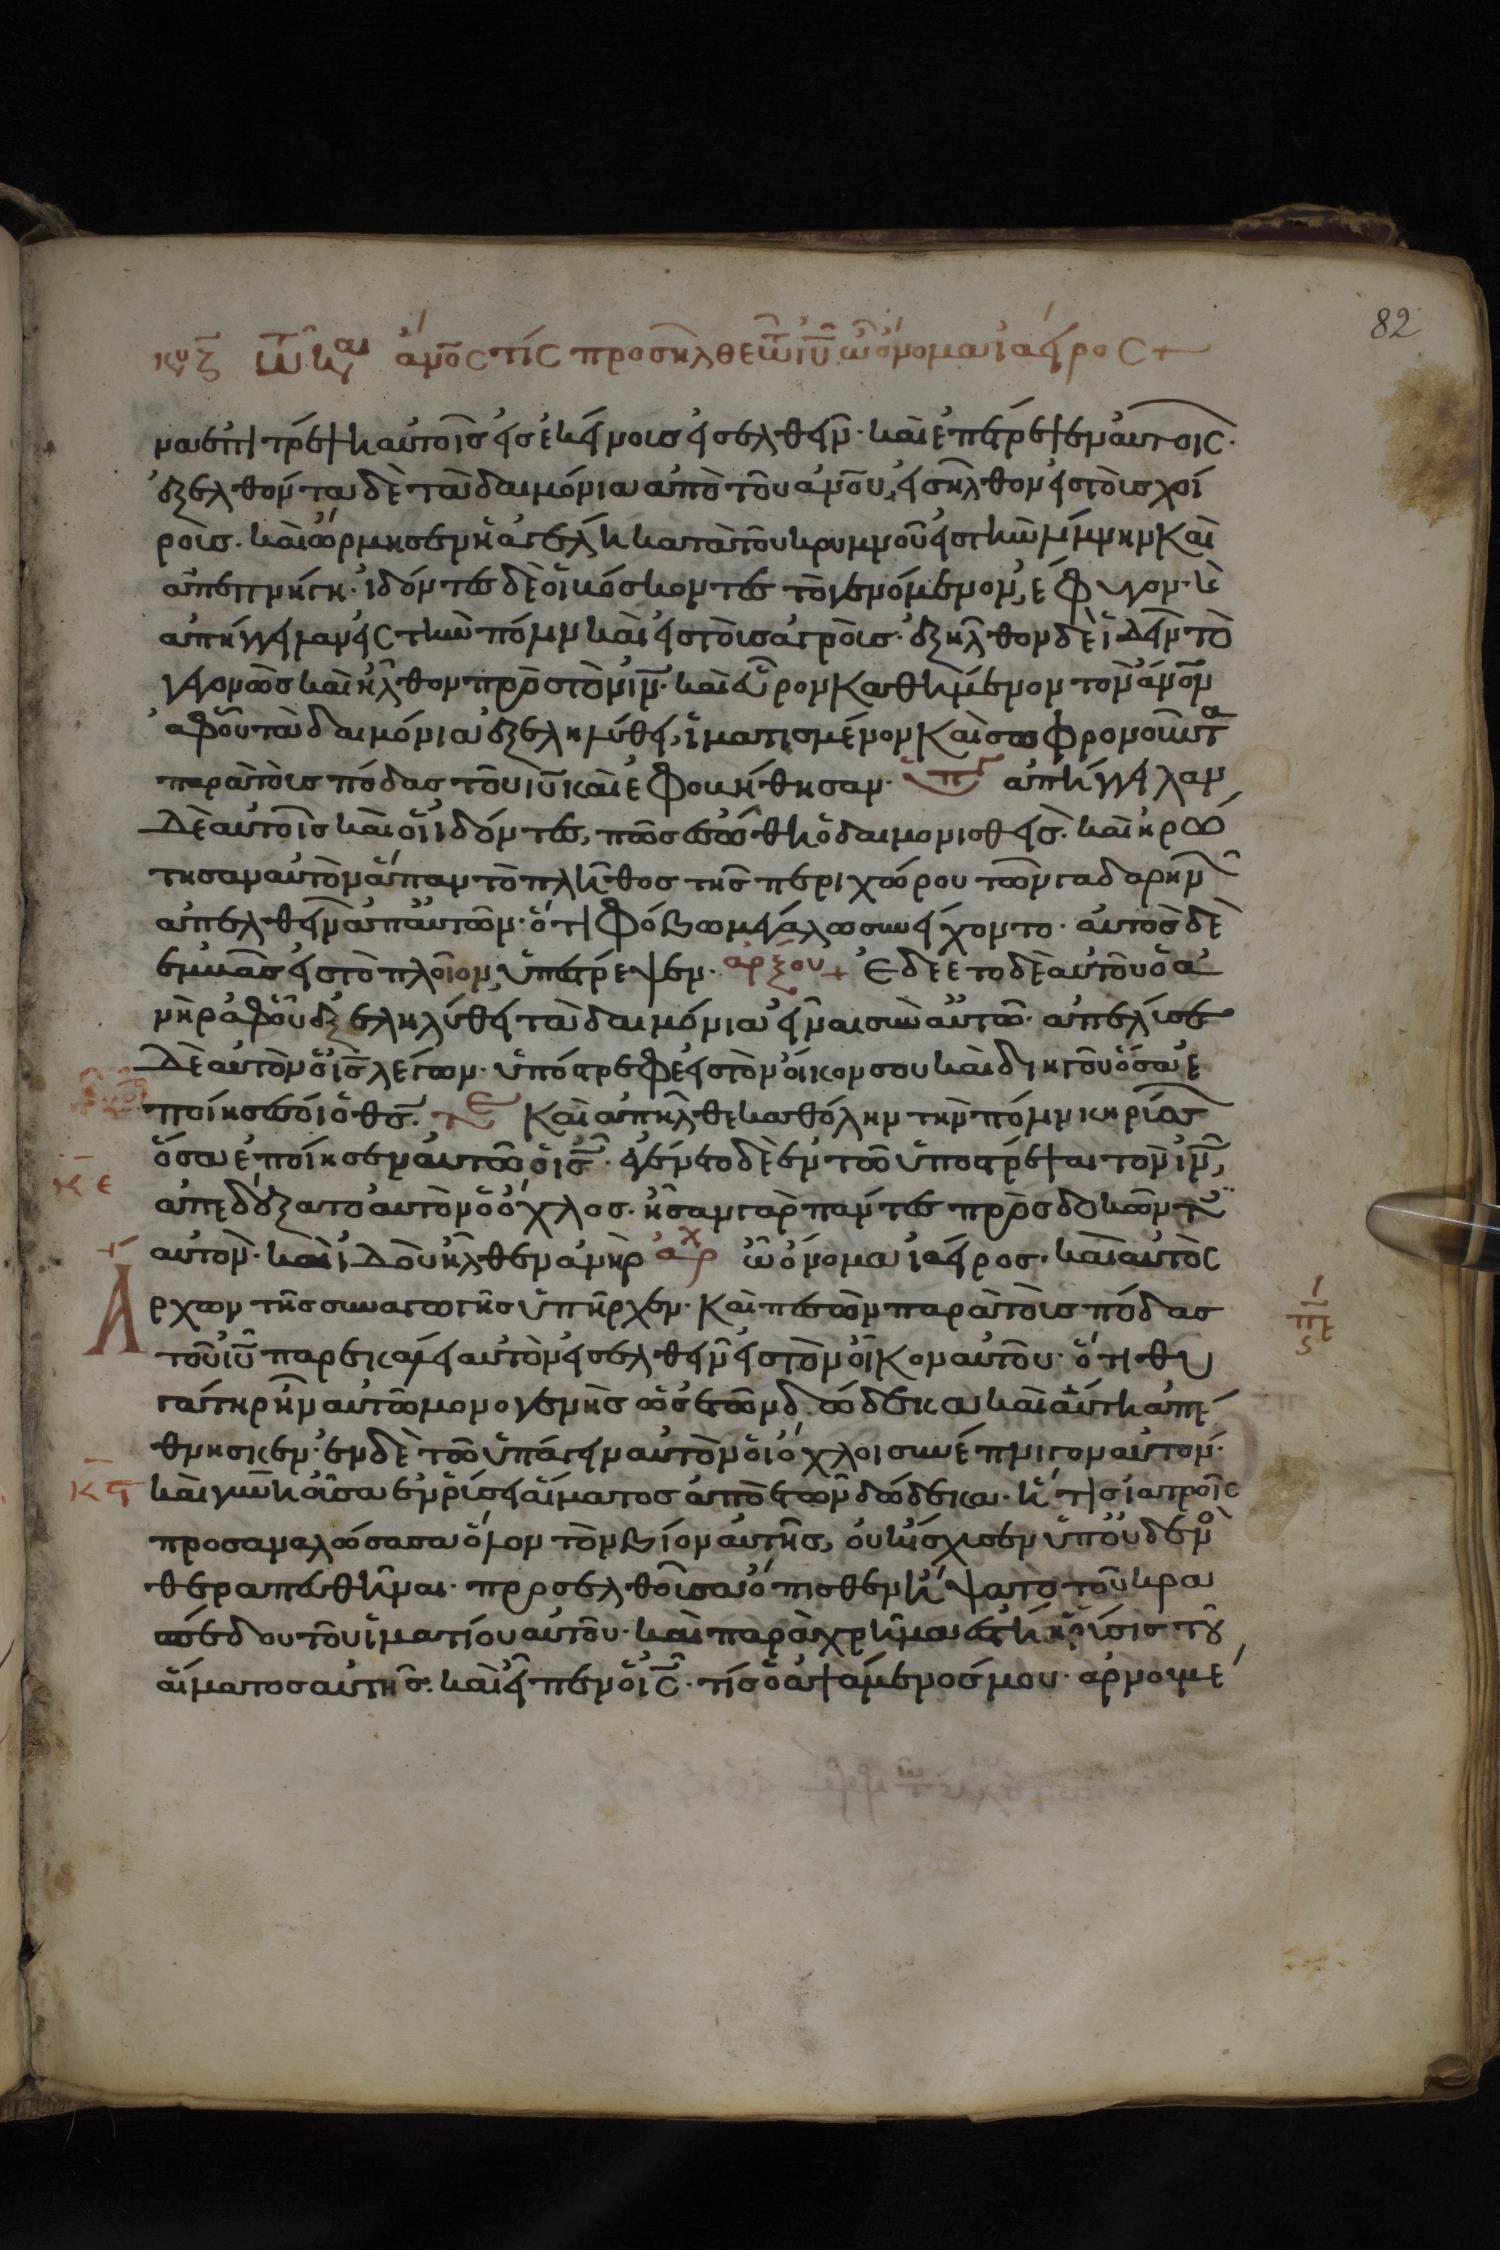 82
κυ ζ τῶ και ἀνος τίς προσῆλθε τῶ ιυ ὧ ὄνομα ἰάειρος +
να ἐπιτρέψη αὐτοῖς εἰς ἐκείνοις εἰσελθεῖν· καὶ ἐπέτρεψεν αὐτοῖς·
ἐξελθόντα δὲ τὰ δαιμόνια ἀπὸ τοῦ ανου, εἰσῆλθον εἰς τοὺς χοί
ροις. καὶ ὥρμησεν ἡ ἀγέλη κατὰ τοῦ κρημνοῦ εἰς τὴν λίμνην καὶ
ἀπεπνίγη· ἰδόντες δὲ οἱ βόσκοντες τὸ γενόμενον, ἔφυγον· κ
ἀπήγγειλαν εἰς τὴν πόλιν καὶ εἰς τοὺς ἀγροὺς· ἐξῆλθον δὲ ἰδεῖν τὸ
γεγονὸς καὶ ἦλθον πρὸς τὸν ιν. καὶ εὗρον καθήμενον τὸν ανον
ἀφ' οὗ τὰ δαιμόνια ἐξεληλύθει, ἱματισμένον καὶ σωφρονοῦντα
παρὰ τοὺς πόδας τοῦ ιυ καὶ ἐφοβήθησαν. ὑπ ἀπήγγειλαν
δὲ αὐτοῖς καὶ οἱ ἰδόντες, πῶς ἐσώθη ὁ δαιμονισθείς. καὶ ἠρώ
τησαν αὐτὸν ἅπαν τὸ πλῆθος τῆς περιχώρου τῶν γαδαρηνῶν
ἀπελθεῖν ἀπ' αὐτῶν· ὅτι φόβω μεγάλω συνείχοντο· αὐτὸς δὲ
ἐμβὰς εἰς τὸ πλοῖον, ὑπέστρεψεν· ἄρξου + ἐδέετο δὲ αὐτοῦ ὁ ἀ
νὴρ ἀφ' οὗ ἐξεληλύθει τὰ δαιμόνια εἶναι σὺν αὐτῶ· ἀπέλυσε
δὲ αὐτὸν ὁ ις λέγων· ὑπόστρεφε εἰς τὸν οἶκον σου καὶ διηγοῦ ὅσα ἐ
ποίησέ σοι ὁ θς. τε καὶ ἀπῆλθε καθ' ὅλην τὴν πόλιν κηρύσσων
ὅσα ἐποίησεν αὐτῶ ὁ ις. ἐγένετο δὲ ἐν τῶ ὑποστρέψαι τὸν ιν,
κ ε
ἀπεδέξατο αὐτὸν ὁ ὄχλος. ἦσαν γὰρ πάντες προσδοκῶντες
αὐτὸν· καὶ ἰδοὺ ἦλθεν ἀνὴρ ἀρχ ὧ ὄνομα ἰάειρος. καὶ αὐτὸς
Ἄρχων τῆς συναγωγῆς ὑπῆρχεν. καὶ πεσὼν παρὰ τοὺς πόδας
πε
ς
τοῦ ιυ παρεκάλει αὐτὸν εἰσελθεῖν εἰς τὸν οἶκον αὐτοῦ· ὅτι θυ
γάτηρ ἦν αὐτῶ μονογενὴς ὡς ἐτῶν δώδεκα καὶ αὕτη ἀπέ
θνησκεν· ἐν δὲ τῶ ὑπάγειν αὐτὸν οἱ ὄχλοι συνέπνιγον αὐτόν·
κ ϛ
καὶ γυνὴ οὖσα ἐν ῥύσει αἵματος ἀπὸ ἐτῶν δώδεκα. ἥτις ἰατροῖς
προσαναλώσασα ὅλον τὸν βίον αὐτῆς, οὐκ ἴσχυσεν ὑπ' οὐδενὸς
θεραπευθῆναι· προσελθοῦσα ὄπισθεν ἥψατο τοῦ κρα
σπέδου τοῦ ἱματίου αὐτοῦ· καὶ παραχρῆμα ἔστη ἡ ῥύσις τοῦ
αἵματος αὐτῆς. καὶ εἶπεν ὁ ις· τίς ὁ ἁψάμενός μου· ἀρνουμέ